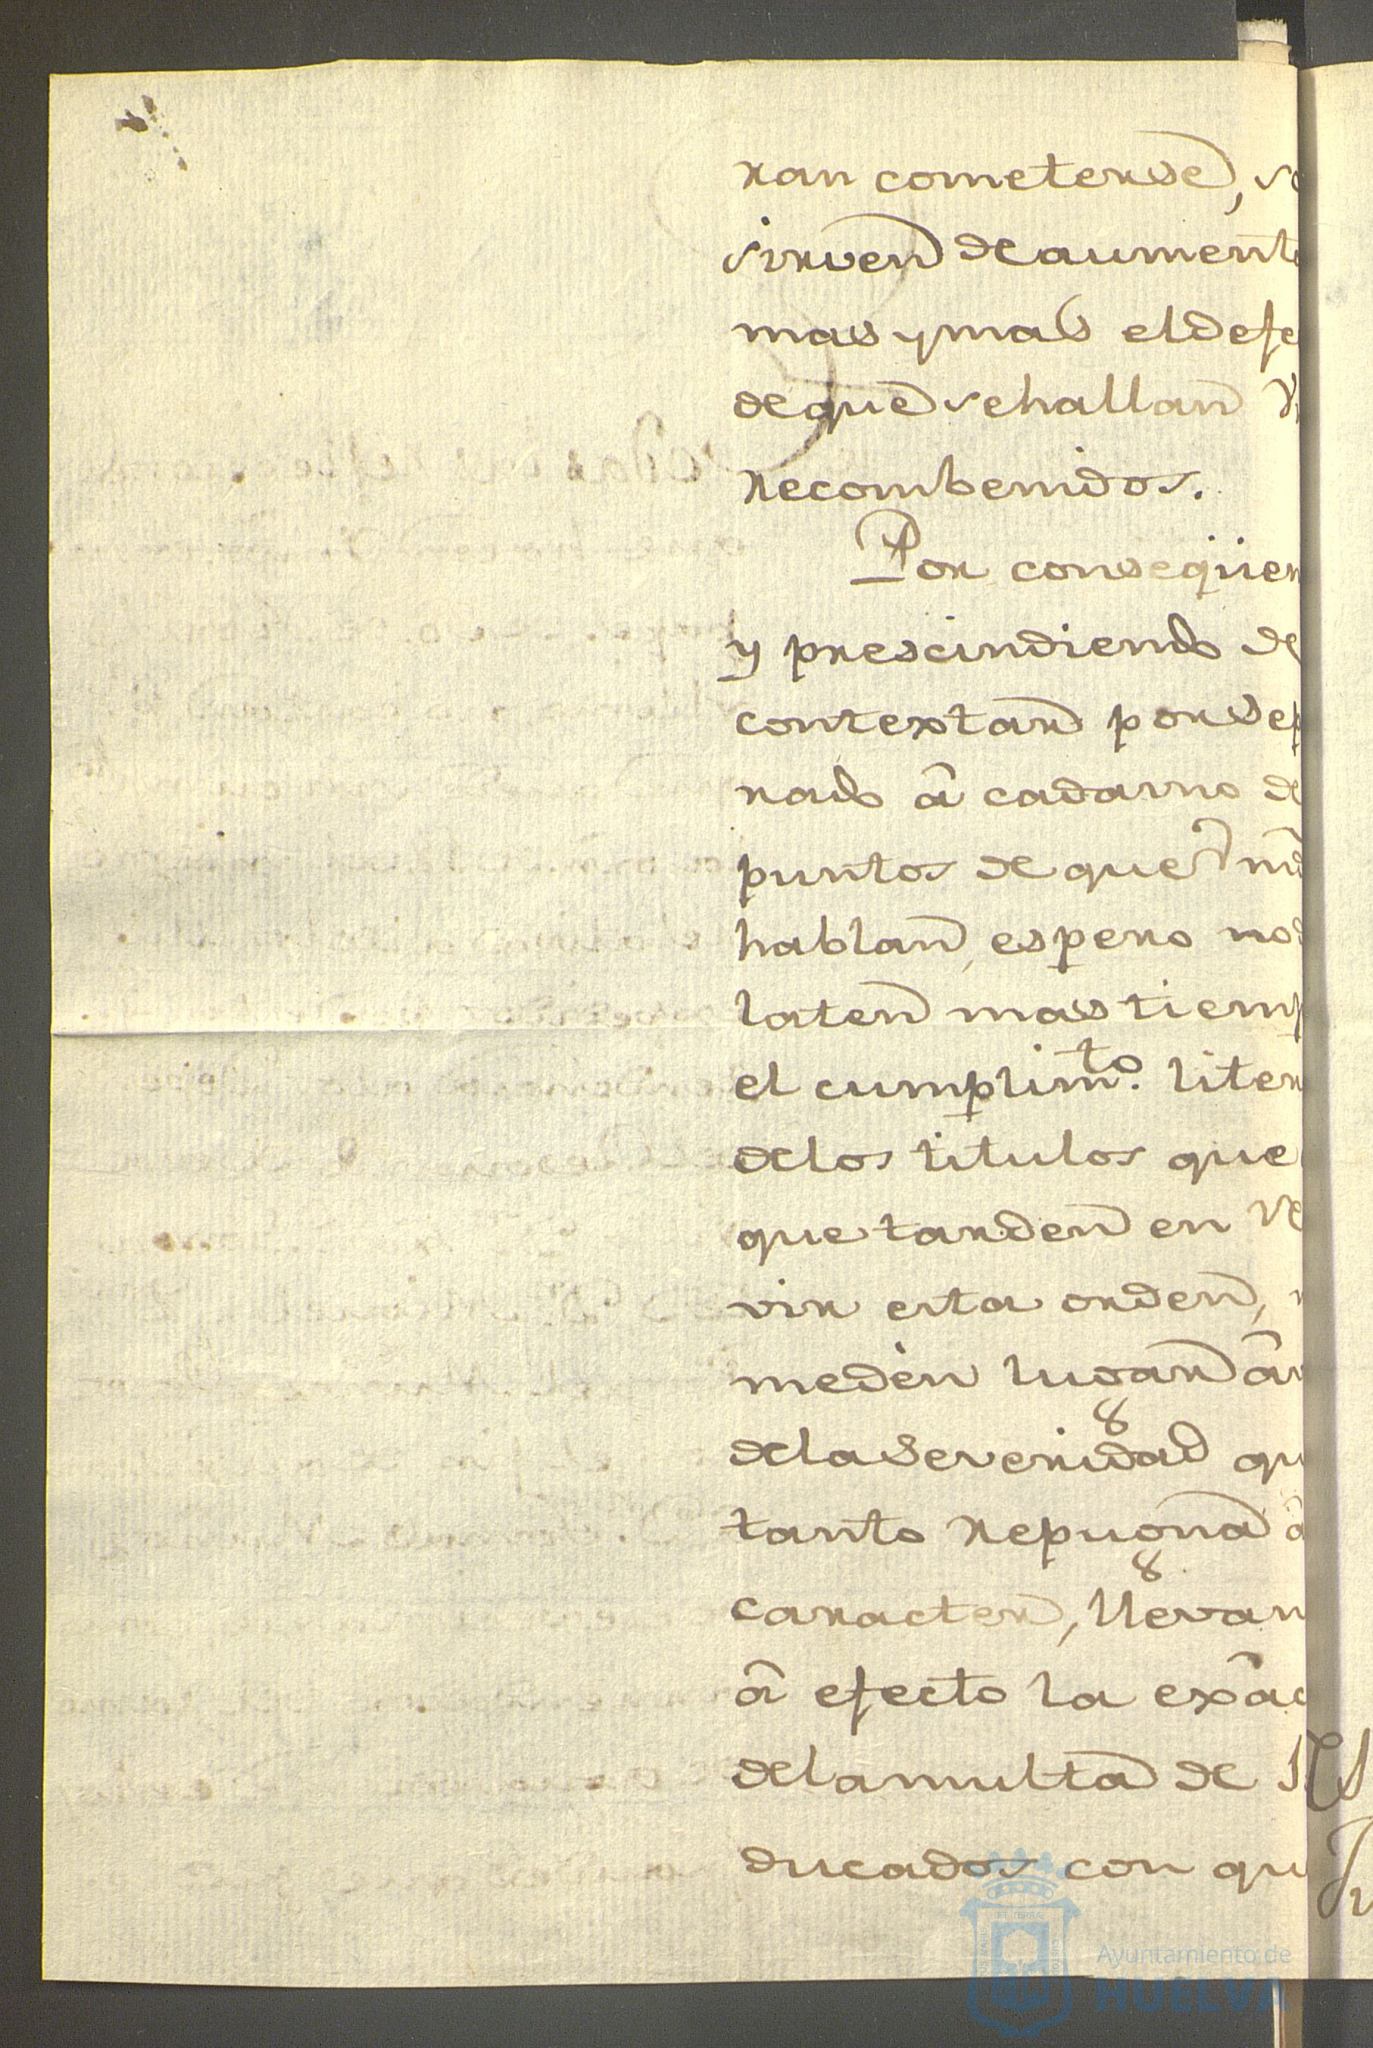 ran cometerse, so
sirven de aument
mas y mas el defe
de que se hallan
recombenidos.
Por conseqüen
y prescindiendo de
contextar por sep
rado â cada uno de
puntos de que
hablan, espero no
laten mas tiemp
el cumplim.to liter
de los titulos que
que tarden en re
vir esta orden,
me den lugar â
de la severidad qu
tanto repugna â
caracter, llevan
â efecto la exâc
de la multa de
ducados con qu
Ayuntamiento de
HUELVA